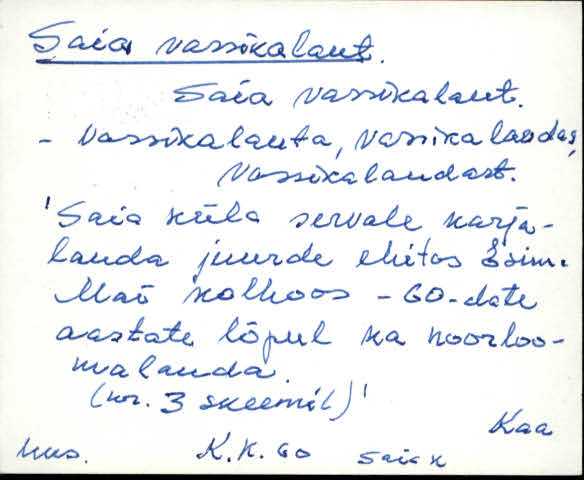 Saia vassikalaut.
Saia vassikalaut.
- Vassikalauta, vassikalaudas,
vassikalaudast.
'Saia küla servale karja-
lauda juurde ehitas Esim.
Mai kolhoos - 60-date
aastate lõpul ka noorloo-
malauda.
(nr. 3 skeemil)'
Kaa
Mus. K.K. 60 Saia k